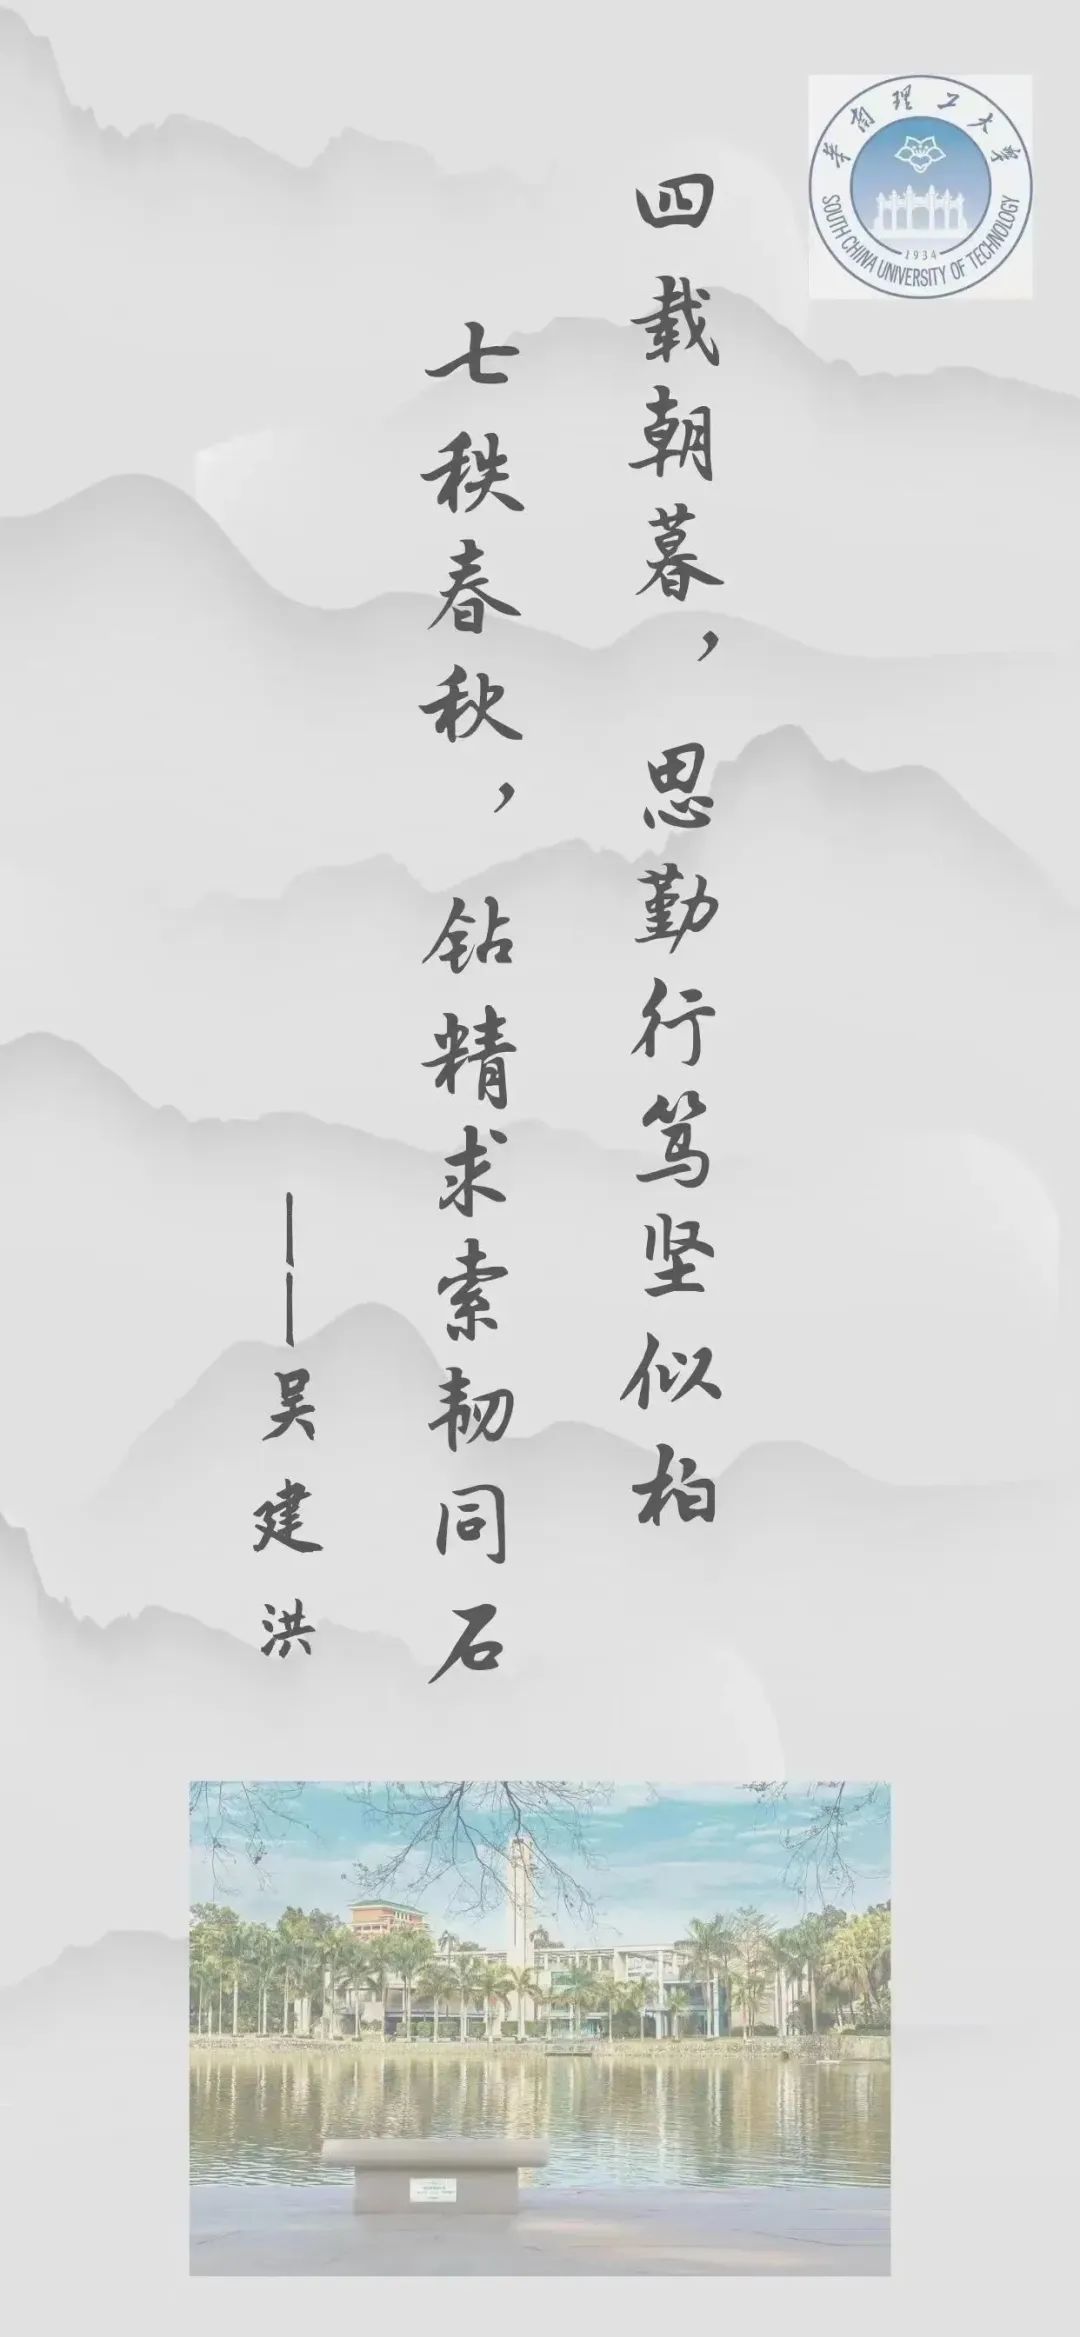 華南理工大學
SOUTH CHINA UNIVERSITY OF TECHNOLOGY
1934
四载朝暮，思勤行笃坚似柏
七秩春秋，钻精求索韧同石
——吴建洪